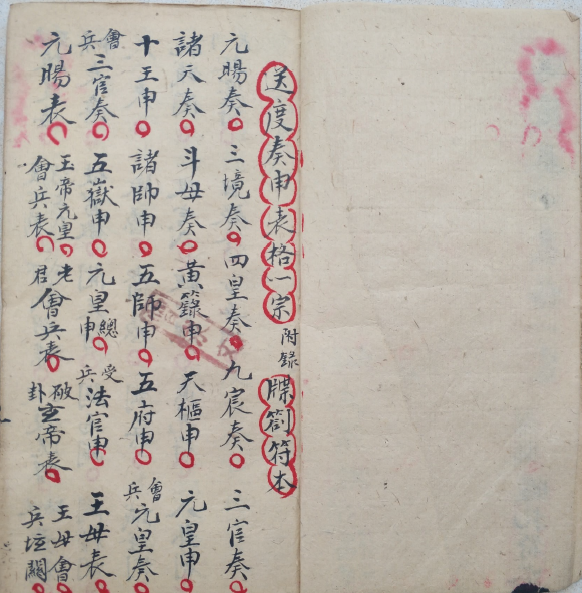 送度奏申表格一宗 附錄 牒劄符本
元暘奏 三境奏 四皇奏 九宸奏 三官奏
諸天奏 斗母奏 黃籙申 天樞申 元皇申
十王申 諸帥申 五師申 五府申 會兵元皇奏
會兵三官奏 五嶽申 元皇總申 受兵法官申 王母表
元暘表 玉帝元皇會兵表 老君會兵表 破卦玄帝表 王母會兵垣闕